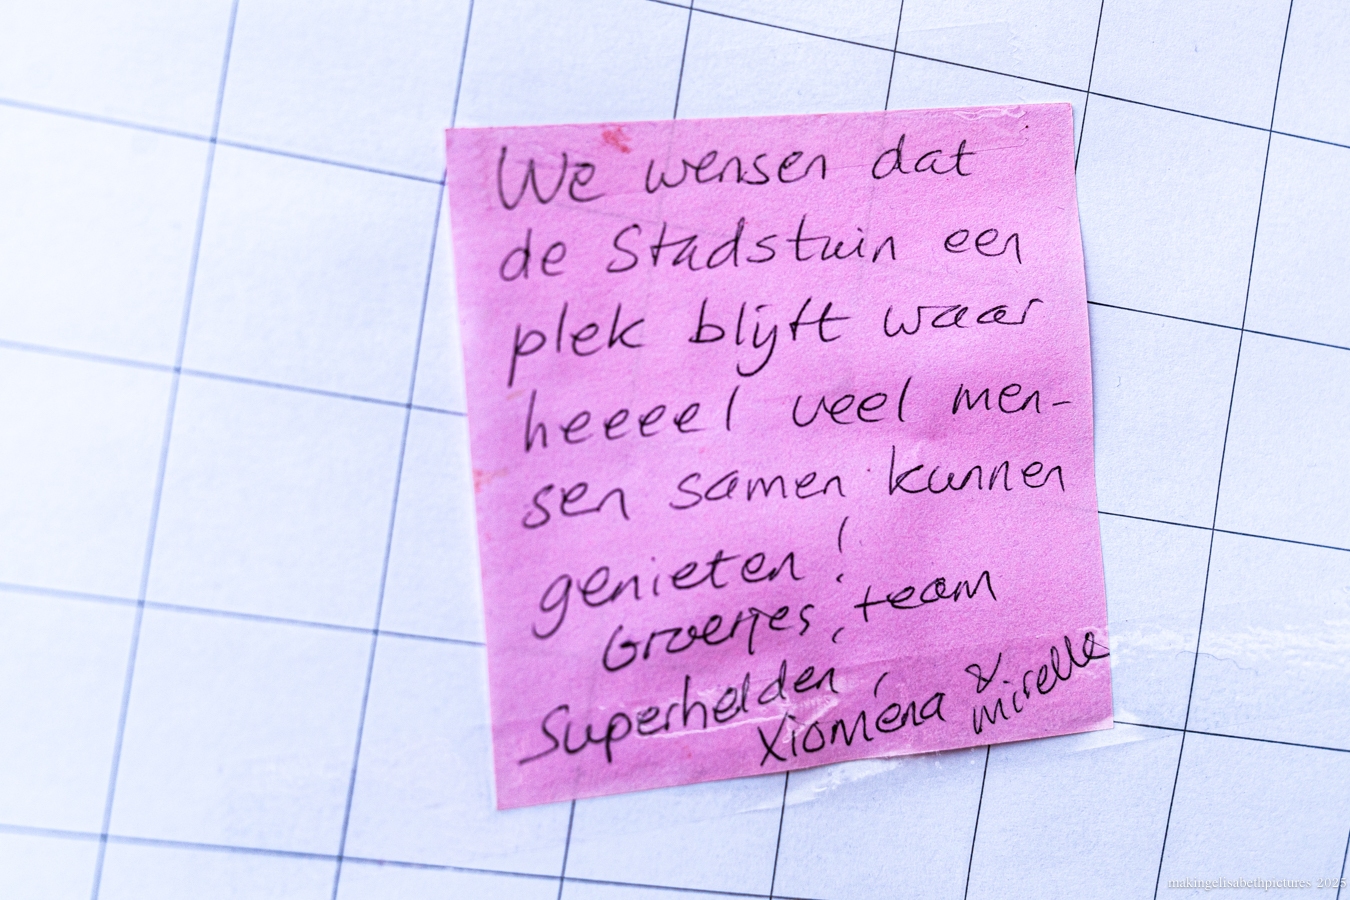 We wensen dat
de Stadstuin een
plek blijft waar
heeeel veel men-
sen samen kunnen
genieten!
Groetjes, team
Superhelden,
Xiomena & Mirelle
makingelisabethpictures 2025